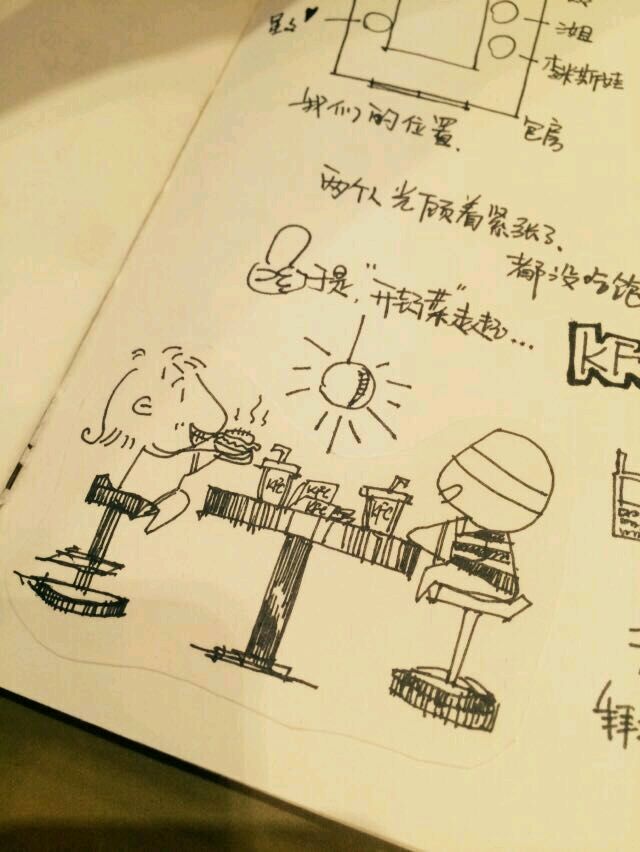 沺姐
李米斯娃
我们的位置.
包房
两个人光顾着紧张了、
都没吃饱
于是,"开封菜"走起...
KF
KFC
KFC
KFC
KFC
拜